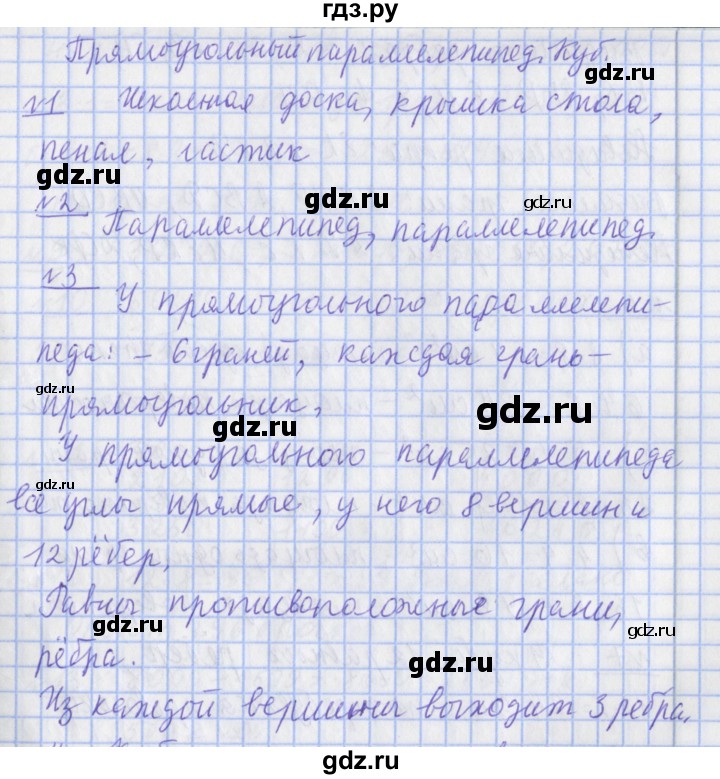 гдз.ру
Прямоугольный параллелепипед. Куб.
gdz.ru
№1 Школьная доска, крышка стола,
gdz.ru
пенал, ластик
gdz.ru
gdz.ru
№2
gdz.ru
Параллелепипед, параллелепипед.
gdz.ru
№3
У прямоугольного параллелепи-
педа: – 6 граней, каждая грань –
gdz.ru
прямоугольник,
gdz.ru
gdz.ru
У прямоугольного параллелепипеда
gdz.ru
все углы прямые, у него 8 вершин и
gdz.ru
12 рёбер,
Равны противоположные грани,
gdz.ru
gdz.ru
рёбра.
gdz.ru
Из каждой вершины выходит 3 ребра.
gdz.ru
gdz.ru